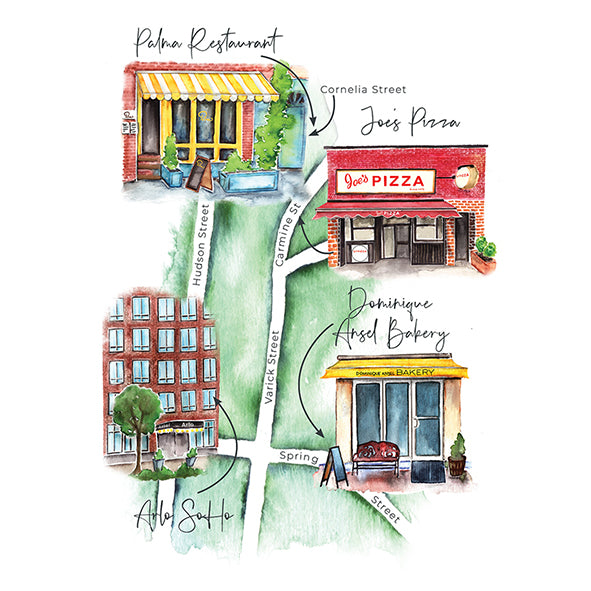 Palma Restaurant
Cornelia Street
Joe's Pizza
Joe's PIZZA
PIZZA
PIZZA
Hudson Street
Carmine St
Dominique
Ansel Bakery
Varick Street
DOMINIQUE ANSEL BAKERY
Arlo
Spring
Street
Arlo SoHo